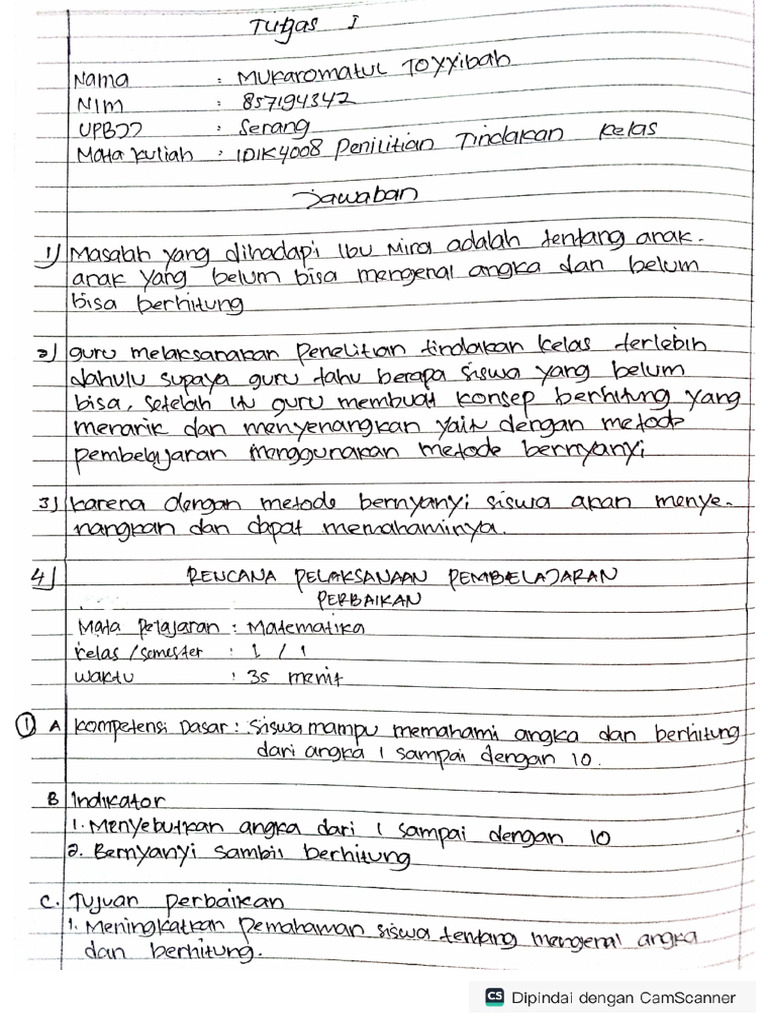 Tugas I
Nama : Mukaromatul Toyyibah
Nim : 857194342
UPBJJ : Serang
Mata kuliah : IDIK4008 Penilitian Tindakan Kelas
Jawaban
1) Masalah yang dihadapi Ibu Mira adalah tentang anak-
anak yang belum bisa mengenal angka dan belum
bisa berhitung
2) guru melaksanakan Penelitian tindakan kelas terlebih
dahulu supaya guru tahu berapa siswa yang belum
bisa, setelah itu guru membuat konsep berhitung yang
menarik dan menyenangkan yaitu dengan metode
pembelajaran menggunakan metode bernyanyi
3) karena dengan metode bernyanyi siswa akan menye-
nangkan dan dapat memahaminya.
4) RENCANA PELAKSANAAN PEMBELAJARAN
PERBAIKAN
Mata Pelajaran : Matematika
Kelas / Semester : 1 / 1
Waktu : 35 menit
① A Kompetensi Dasar : Siswa mampu memahami angka dan berhitung
dari angka 1 sampai dengan 10.
B Indikator
1. Menyebutkan angka dari 1 sampai dengan 10
2. Bernyanyi sambil berhitung
C. Tujuan perbaikan
1. Meningkatkan Pemahaman siswa tentang mengenal angka
dan berhitung.
CS Dipindai dengan CamScanner